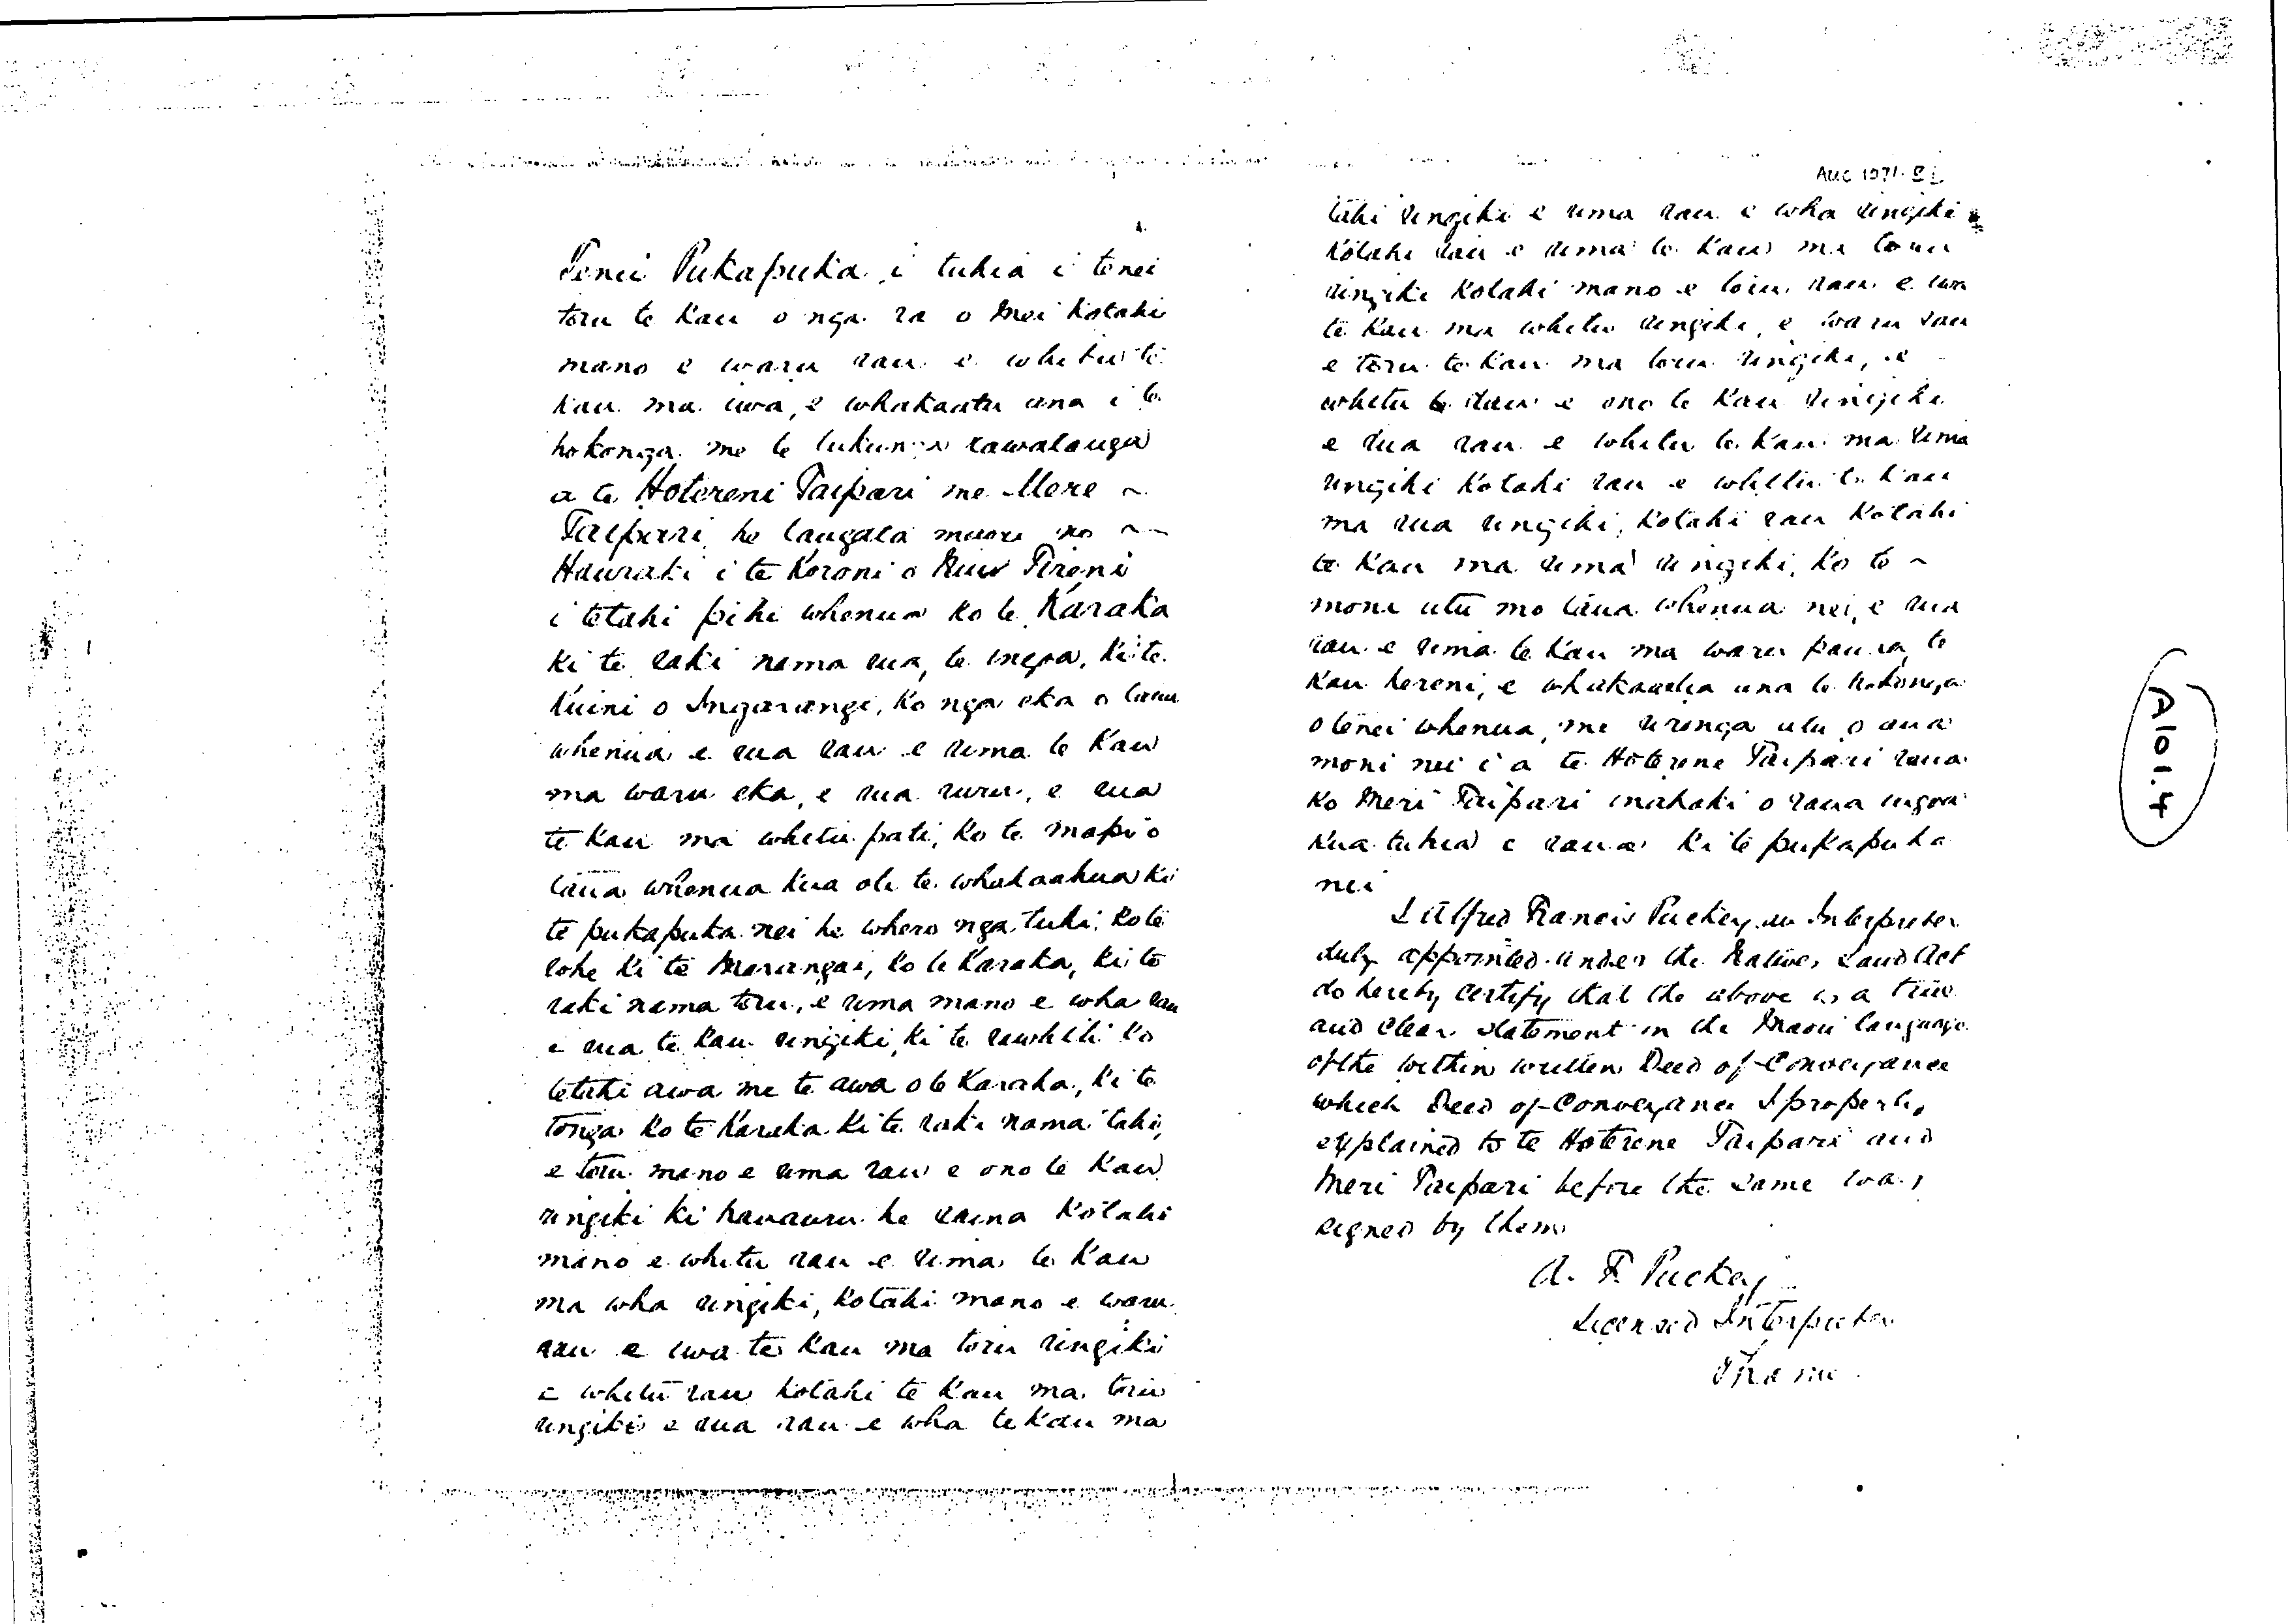 Tenei Pukapuka i tuhia i tenei
toru te Kau o nga ra o Mei Kotahi
mano e waru rau e whitu te
kau ma iwa, e whakaatu ana i te
hokonga me te tukunga rawatanga
a te Hotereni Taipari me Mere ~
Taipari he tangata maori no ~
Hauraki i te Koroni o Niu Tireni
i tetahi pihi whenua ko te Karaka
ki te raki nama rua, te ingoa, ki te
Kuini o Ingarangi, ko nga eka o taua
whenua e rua rau e rima te Kau
ma waru eka, e rua ruru, e rua
te Kau ma whitu pati, ko te mapi o
taua whenua kua oti te whakaahua ki
te pukapuka nei he whero nga tuhi; ko te
rohe ki te Marangai, ko te Karaka, ki te
raki nama toru, e rima mano e wha rau
e rua te Kau ringiki, ki te rawhiti ko
tetahi awa me te awa o te Karaka, ki te
Tonga ko te Karaka ki te raki nama tahi,
e toru mano e rima rau e ono te Kau
ringiki ki hauauru he raina Kotahi
mano e whitu rau e rima te Kau
ma wha ringiki, Kotahi mano e waru
rau e iwa te Kau ma toru ringiki
e whitu rau kotahi te Kau ma toru
ringiki e rua rau e wha te Kau ma
AUC 1071
tahi ringiki e rima rau e wha ringiki
Kotahi rau e rima te Kau ma toru
ringiki Kotahi mano e toru rau e iwa
te Kau ma whitu ringiki, e waru rau
e toru te Kau ma toru ringiki, e
whitu te rau e ono te Kau ringiki
e rua rau e whitu te Kau ma rima
ringiki Kotahi rau e whitu te Kau
ma rua ringiki, Kotahi rau Kotahi
te Kau ma rima ringiki, Ko te ~
moni utu mo taua whenua nei, e rua
rau e rima te Kau ma waru pauna te
Kau hereni, e whakaaetia ana te hokonga
o tenei whenua, me riringa utu o aua
moni nei i a te Hoterene Taipari raua
Ko Meri Taipari inahoki o raua ingoa
Kua tuhia e raua ki te pukapuka
nei
I Alfred Francis Puckey an Interpreter
duly appointed under the Native Land Act
do hereby certify that the above is a true
and clear statement in the Maori language
of the within written Deed of Conveyance
which Deed of Conveyance I properly
explained to te Hoterene Taipari and
Meri Taipari before the same was
signed by them
A. F. Puckey
Licensed Interpreter
Thame
A101.4